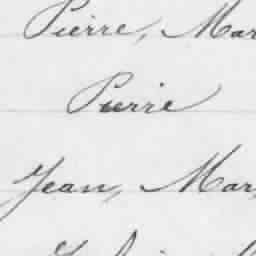 Pierre, Mar
Pierre
Jean, Mar